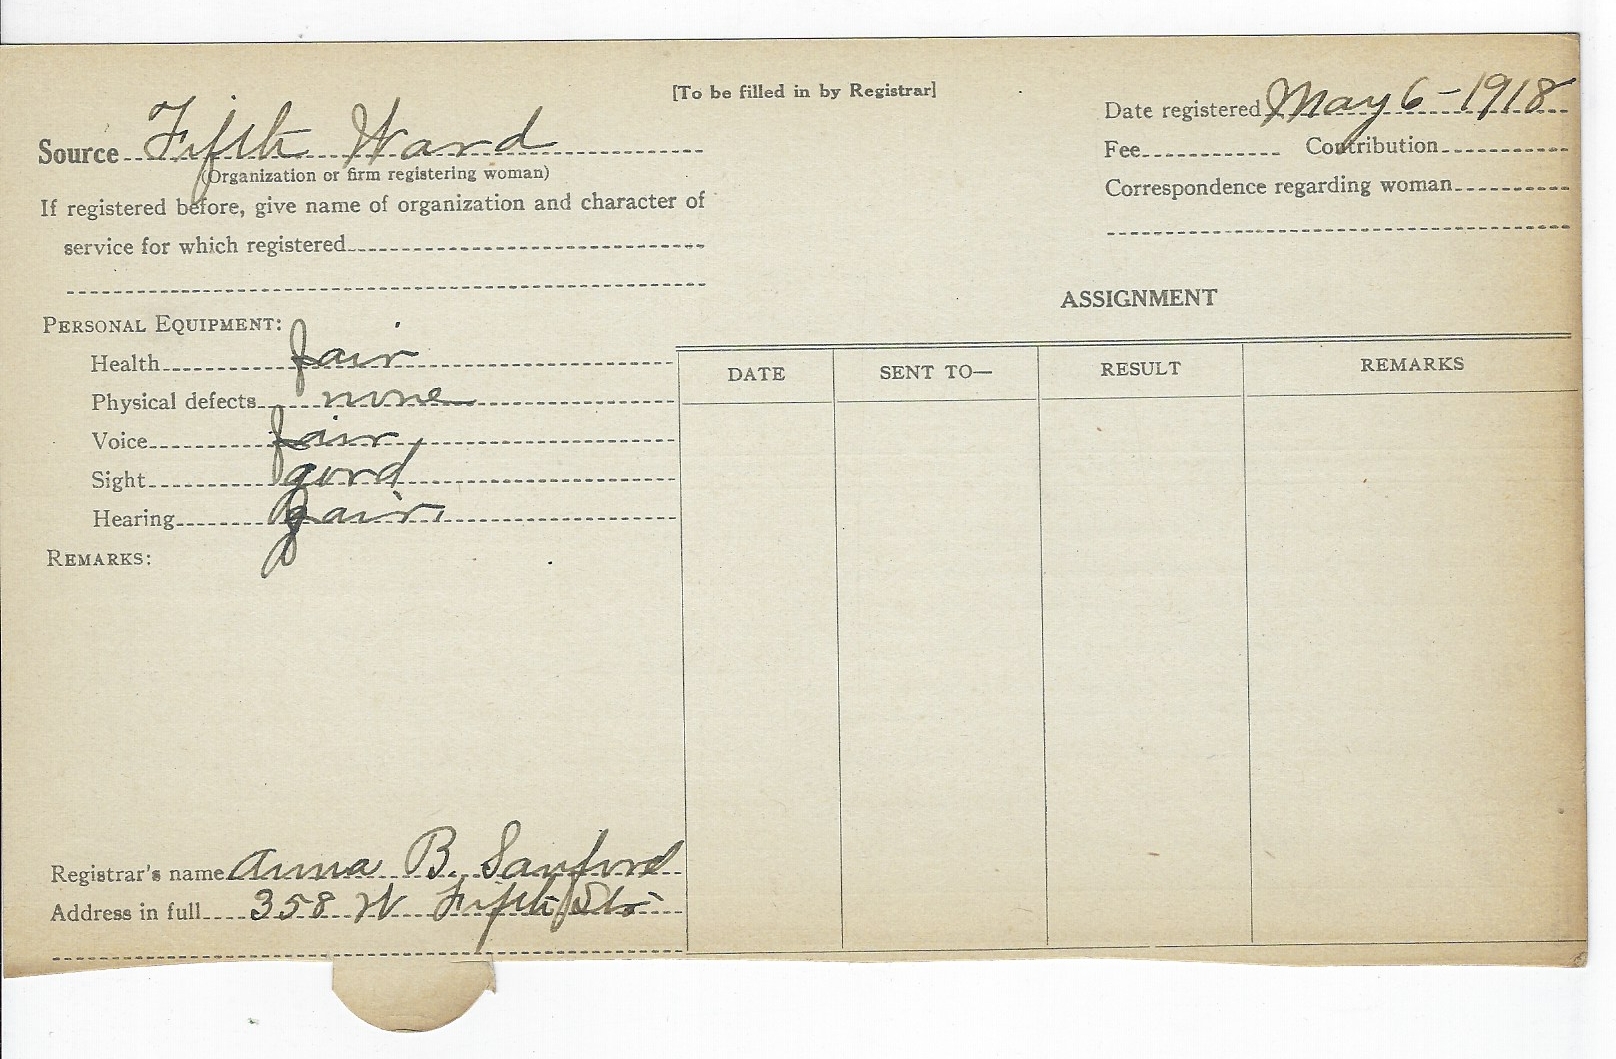 [To be filled in by Registrar]
Source Fifth Ward
(Organization or firm registering woman)
If registered before, give name of organization and character of
service for which registered
Personal Equipment:
Health fair
Physical defects none
Voice fair
Sight good
Hearing fair
Remarks:
Registrar's name Anna B. Sanford
Address in full 358 W Fifth St
Date registered May 6-1918
Fee Contribution
Correspondence regarding woman
ASSIGNMENT
DATE SENT TO— RESULT REMARKS